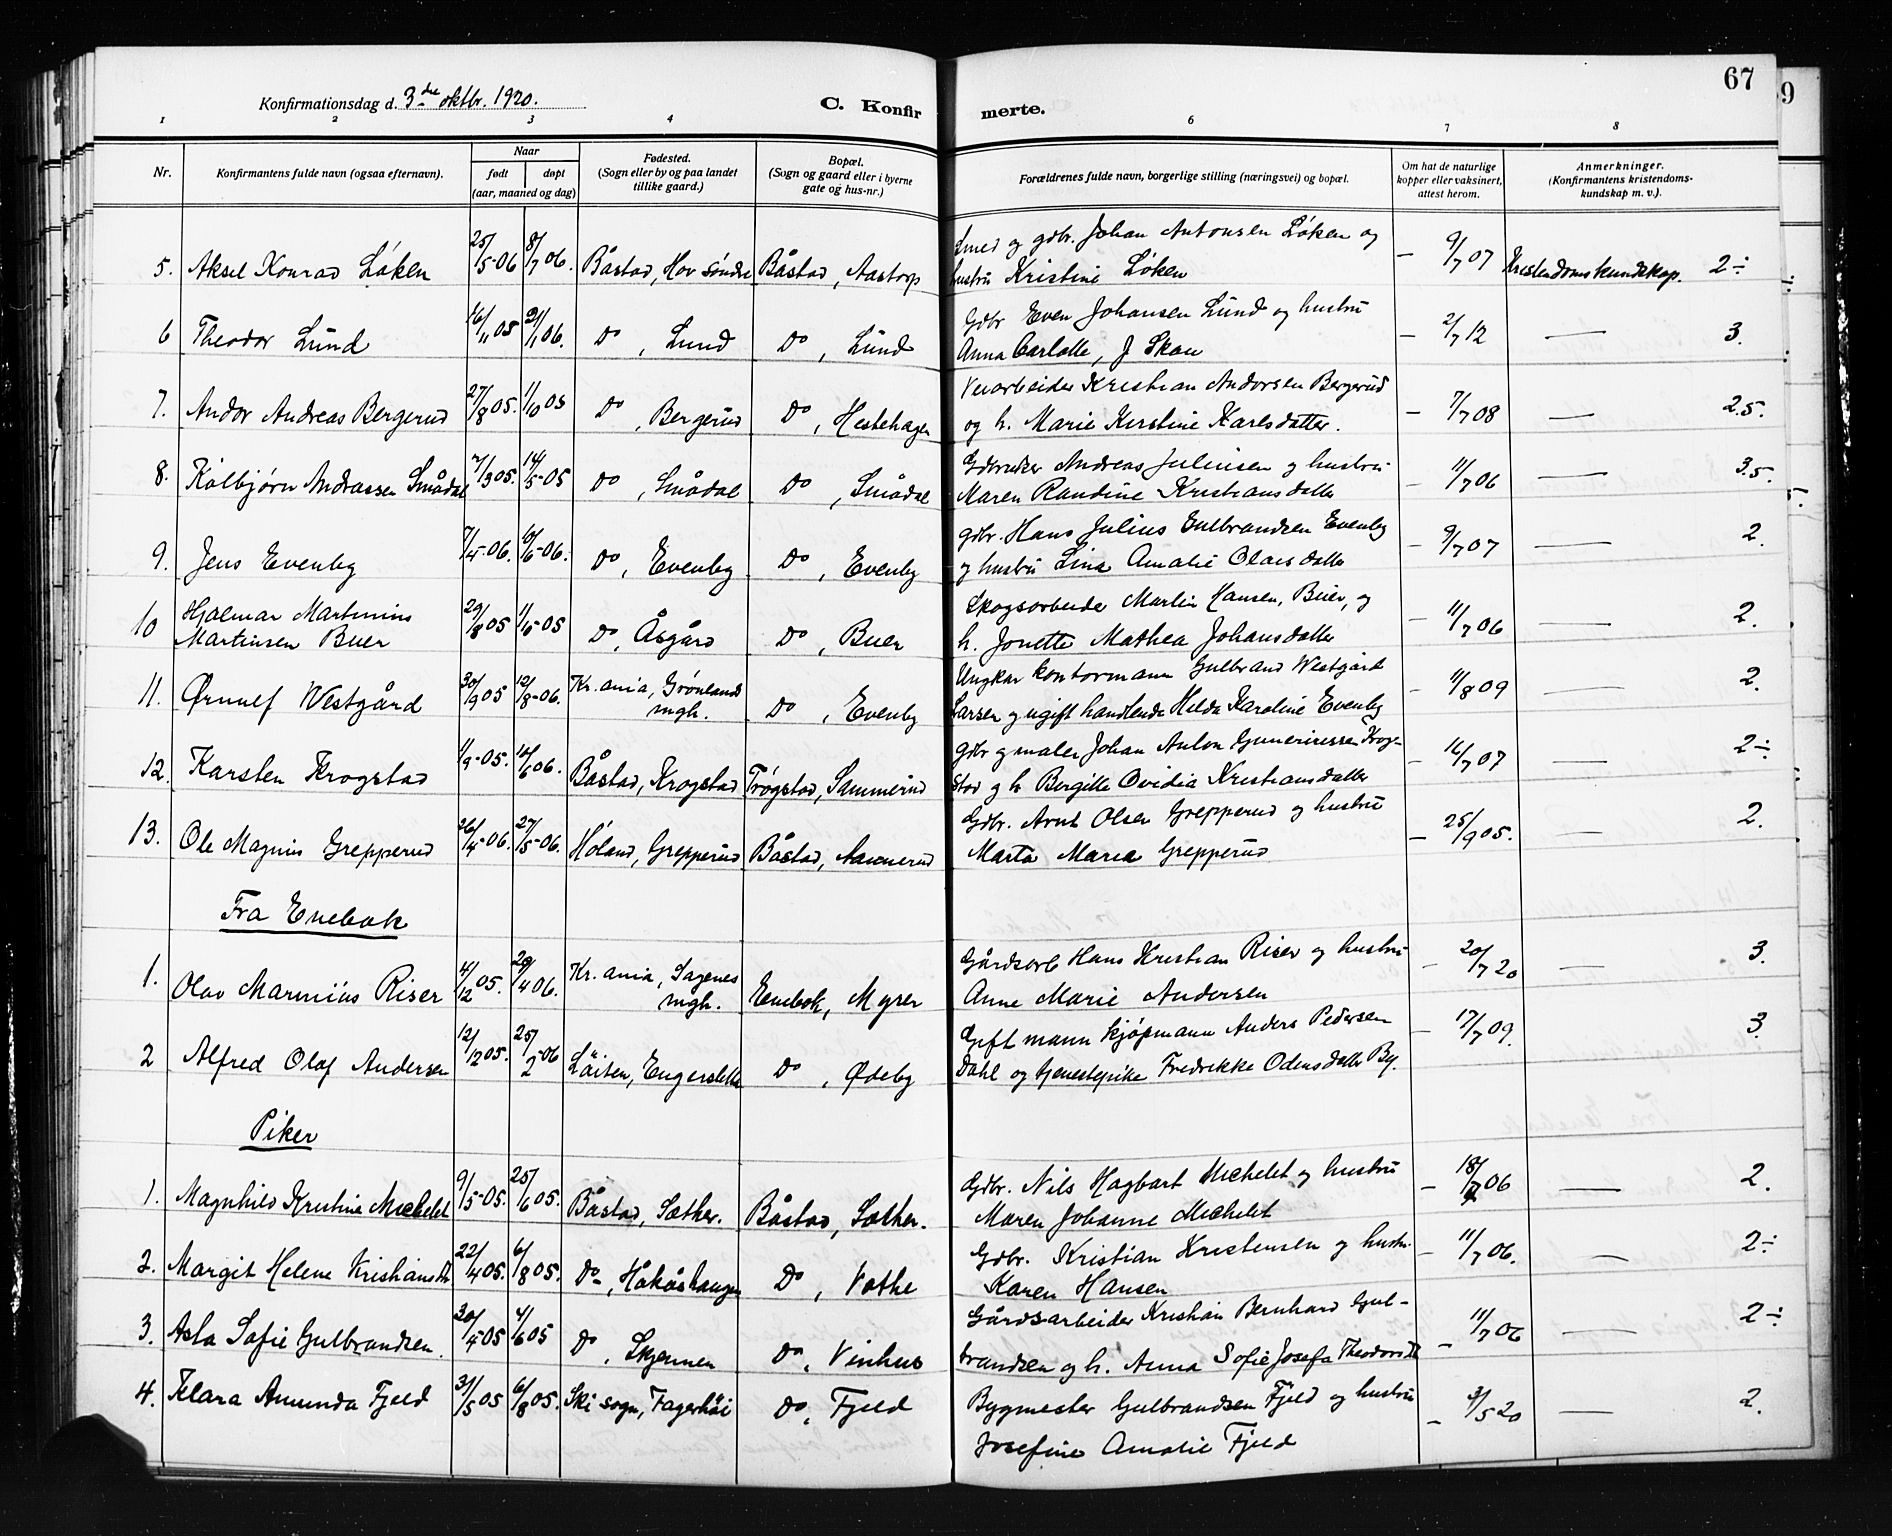 67
9
Konfirmationsdag d. 3dre oktbr. 1920.
C. Konfirmerte.
1 2 3 4 6 7 8
Nr.
Konfirmantens fulde navn (ogsaa efternavn).
Naar
født døpt
(aar, maaned og dag)
Fødested.
(Sogn eller by og paa landet
tillike gaard.)
Bopæl.
(Sogn og gaard eller i byerne
gate og hus-nr.)
Forældrenes fulde navn, borgerlige stilling (næringsvei) og bopæl.
Om hat de naturlige
kopper eller vaksinert,
attest herom.
Anmerkninger.
(Konfirmantens kristendoms-
kundskap m. v.).
5. Aksel Konrad Løken 25/5-06 8/7 06. Båstad, Hov søndre Båstad, Aastorp Smed og gdbr. Johan Antonsen Løken og
hustru Kristine Løken – 9/7 07 Kristendomskundskap. 2÷
6 Theodor Lund 16/11 05 21/1 06. Do, Lund Do, Lund Gdbr Even Johansen Lund og hustru
Anna Carlotte, f Skau – 2/7 12 — 3.
7. Andor Andreas Bergerud 27/8 05. 1/10 05 Do, Bergerud Do, Hestehagen Veiarbeider Kristian Andorsen Bergerud
og h. Marie Kirstine Karlsdatter. – 7/7 08 — 2.5.
8. Kolbjørn Andreassen Smådal 7/3 05. 14/5-05 Do, Smådal Do, Smådal Gdbruker Andreas Juliussen og hustru
Maren Randine Kristiansdatter – 11/7 06 — 3.5.
9. Jens Evenby 7/4-06. 10/6-06. Do, Evenby Do, Evenby gdbr. Hans Julius Gulbrandsen Evenby
og hustru Lina Amalie Olausdatter – 9/7 07 — 2.
10 Hjalmar Martinius
Martinsen Buer 29/8 05 1/10-05 Do, Åsgård Do, Buer Skogsarbeider Martin Hansen, Buer, og
h. Jonette Mathea Johansdatter – 11/7 06 — 2.
11. Ørnulf Westgård 30/9 05 12/8-06. Kr.ania, Grønlands
mgh. Do, Evenby Ungkar kontormann Gulbrand Westgård
Larsen og ugift handlende Hilda Karoline Evenby – 11/8 09 — 2.
12. Karsten Krogstad 1/9-05. 10/6 06. Båstad, Krogstad Trøgstad, Sammerud gdbr og maler Johan Anton Guneriussen Krog-
stad og h Bergitte Ovidia Kristiansdatter – 16/7 07 — 2÷
13. Ole Magnus Grepperud 26/4-06. 27/5-06. Høland, Grepperud Båstad, Gdbr. Arnt Olsen Grepperud og hustru
Marta Maria Grepperud – 25/9 05. — 2.
Fra Enebak
1. Olav Marinius Riser 4/12 05. 29/4 06. Kr.ania, Sagenes
mgh. Enebok, Myrer Gårdsarb Hans Kristian Riser og hustru
Anne Marie Andersen – 20/7 20 — 3.
2 Alfred Olaf Andersen 12/12 05. 25/2-06 Løiten, Engersletta Do, Ødeby Gift mann kjøpmann Anders Pedersen
Dahl og tjenestepike Fredrikke Odensdatter By. – 17/7 09. — 3.
Piker
1. Magnhild Kristine Michelet 9/5-05. 25/6 05. Båstad, Sæther. Båstad, Sæther. Gdbr. Nils Hagbart Michelet og hustru
Maren Johanne Michelet – 18/7 06 — 2.
2. Margit Helene Kristiansdtr 22/4 05. 6/8 05. Do, Håkåshaugen Do, Vathe Gdbr. Kristian Kristensen og hustru
Karen Hansen – 11/7 06. — 2÷
3. Asta Sofie Gulbrandsen. 30/4 05 4/6 05 Do, Skjennen Do, Vinhus Gårdsarbeider Kristian Bernhard Gul-
brandsen og h. Anna Sofie Josefa Theodorsdtr – 11/7 06 — 2÷
4. Klara Amunda Fjeld 31/5 05 6/8 05. Ski sogn, Fagerhøi Do, Fjeld Bygmester Gulbrandsen Fjeld og hustru
Josefine Amalie Fjeld – 3/5 20 — 2.